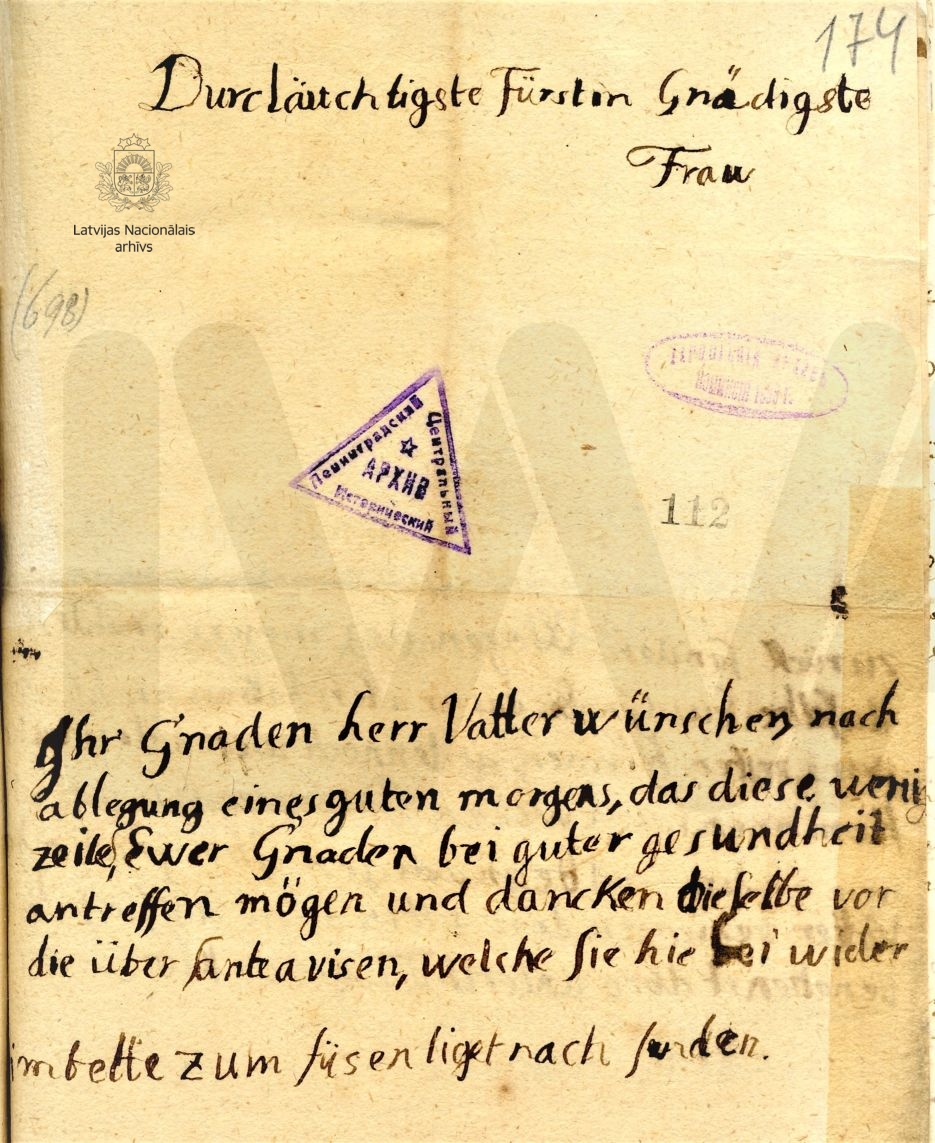 174
Durcläuchtigste Fürstin Gnädigste
Frau
Latvijas Nacionālais
arhīvs
(698)
Ленинградский
Центральный
Исторический
АРХИВ
112
Ihr Gnaden herr Vatter wünschen nach
ablegung eines guten morgens, das diese wenig
zeile, Ewer Gnaden bei guter gesundheit
antreffen mögen und dancken dieselbe vor
die über sante avisen, welche Sie hie bei wider
im bette zum füsen liget nach